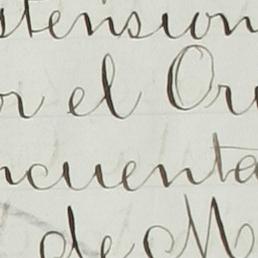 stension
or el Ori
ncuenta
de M